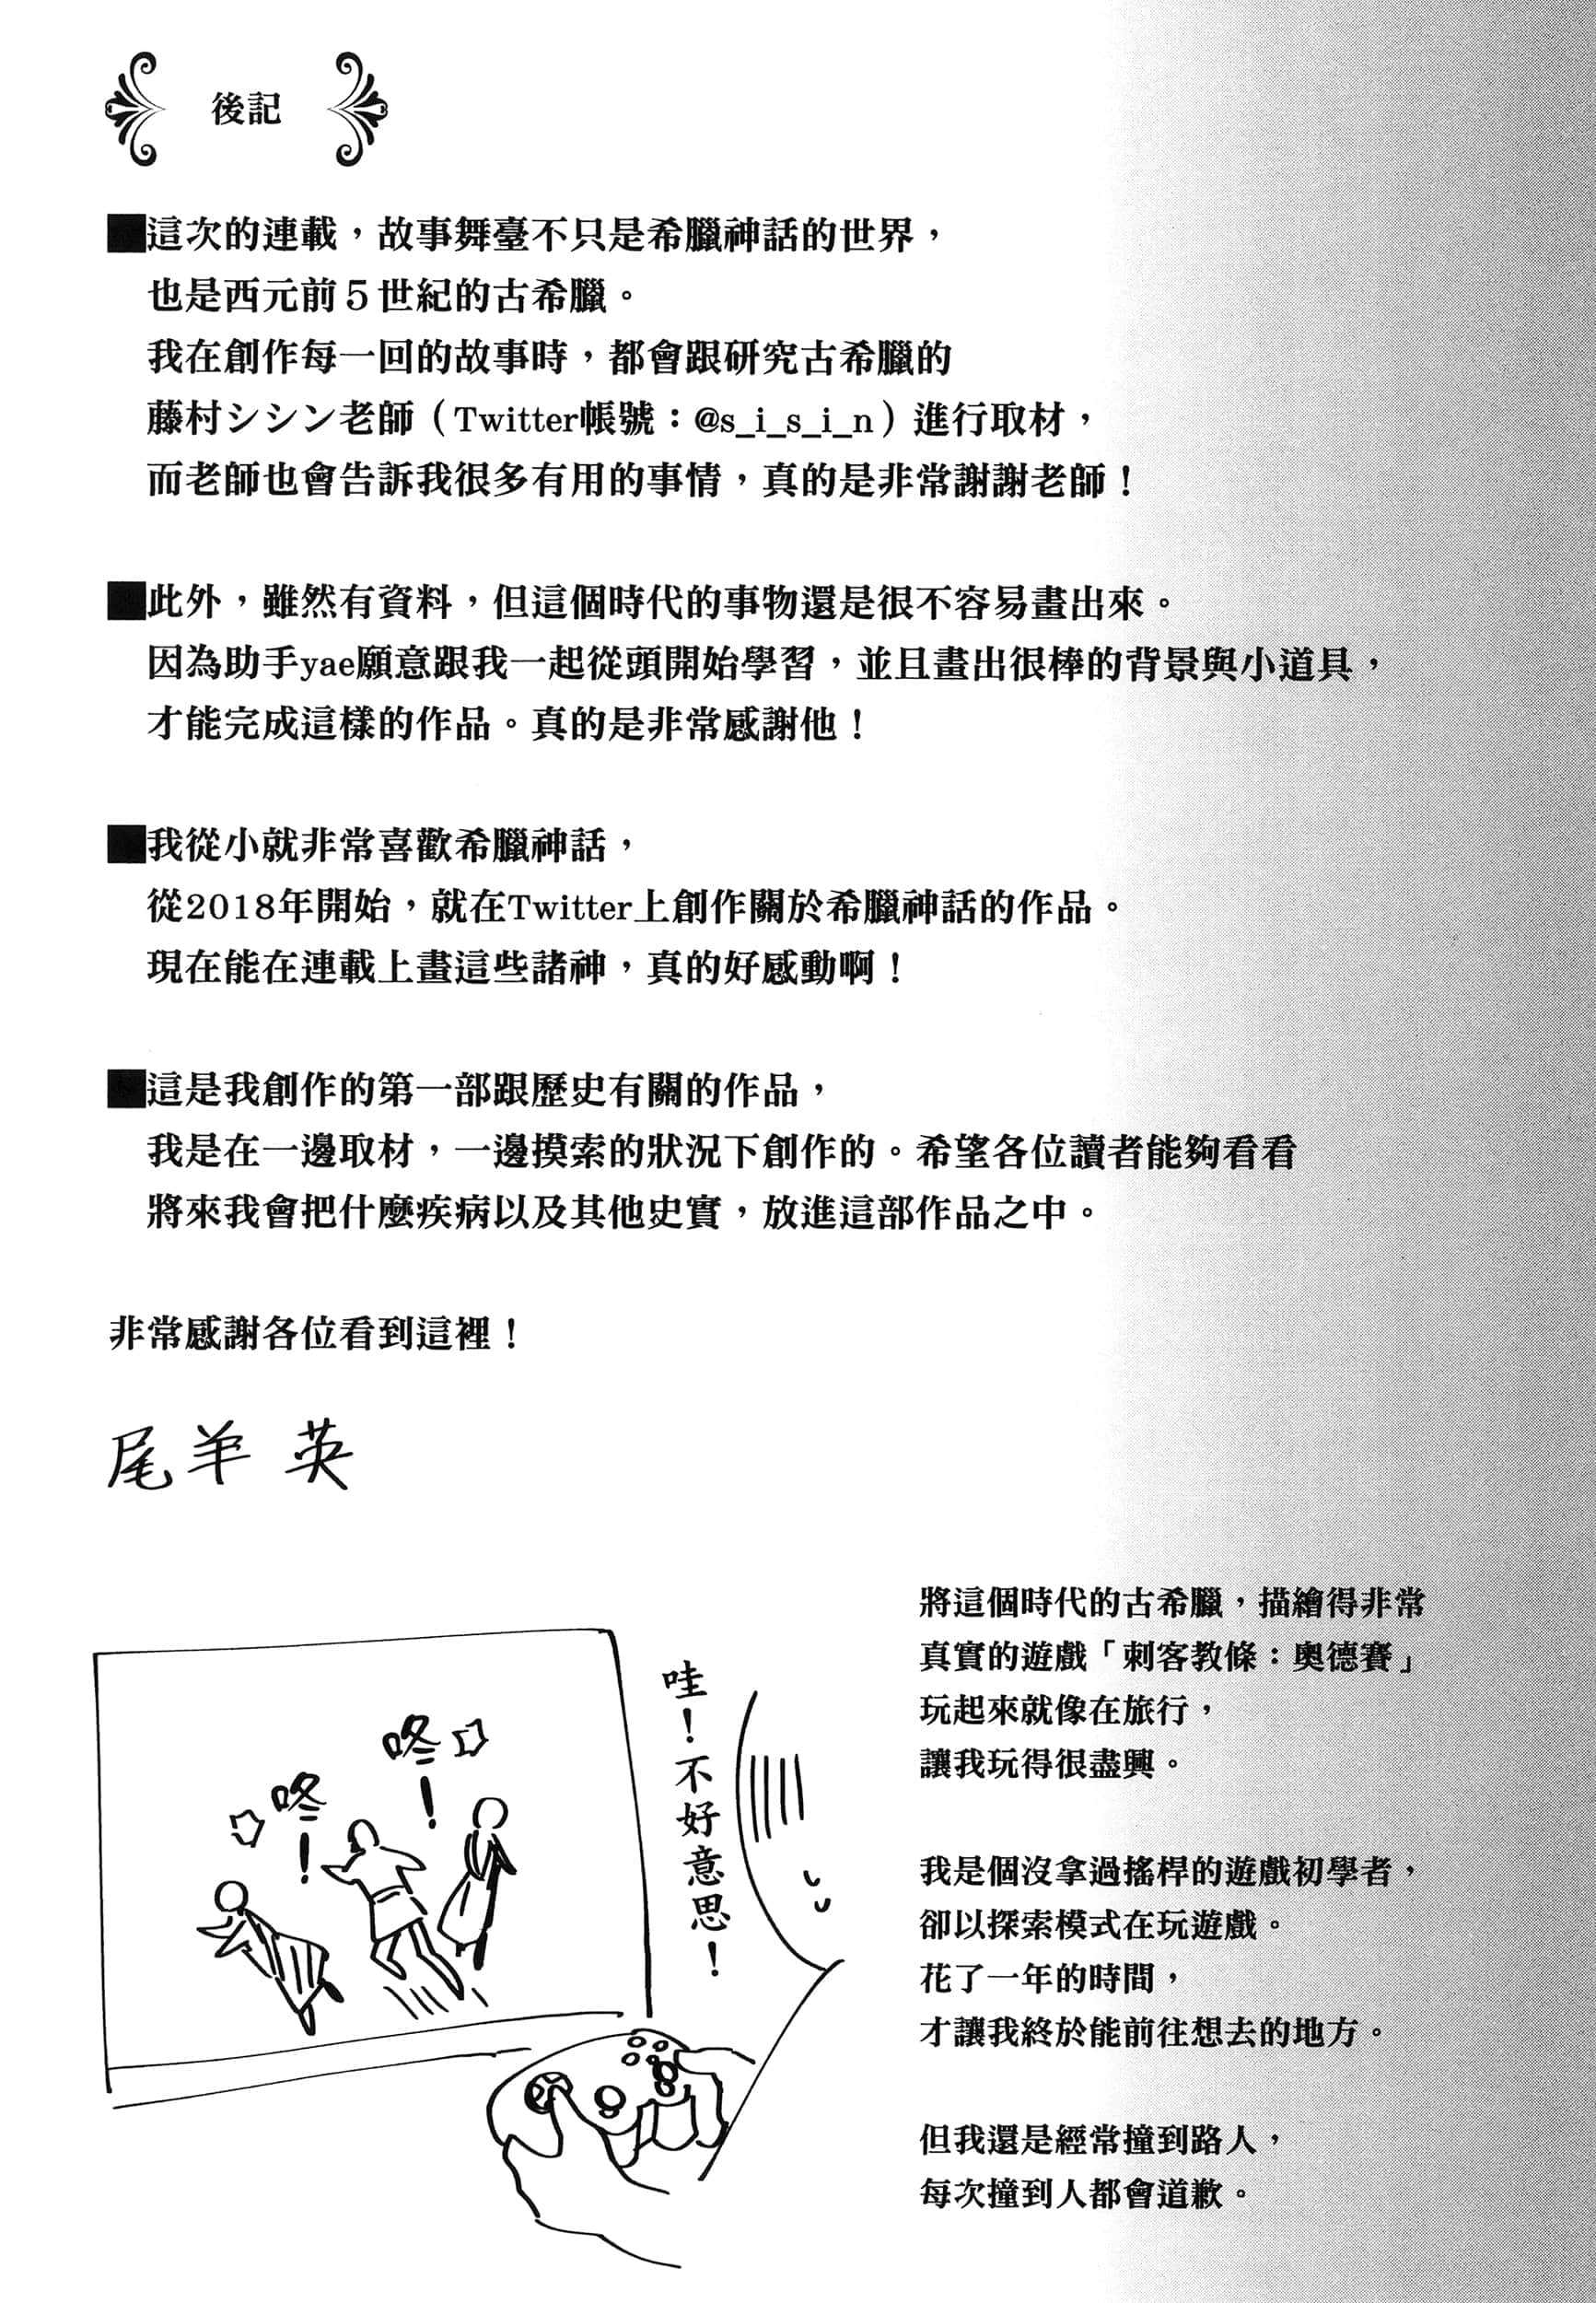 後記
■這次的連載，故事舞臺不只是希臘神話的世界，
也是西元前5世紀的古希臘。
我在創作每一回的故事時，都會跟研究古希臘的
藤村シシン老師（Twitter帳號：@s_i_s_i_n）進行取材，
而老師也會告訴我很多有用的事情，真的是非常謝謝老師！
■此外，雖然有資料，但這個時代的事物還是很不容易畫出來。
因為助手yae願意跟我一起從頭開始學習，並且畫出很棒的背景與小道具，
才能完成這樣的作品。真的是非常感謝他！
■我從小就非常喜歡希臘神話，
從2018年開始，就在Twitter上創作關於希臘神話的作品。
現在能在連載上畫這些諸神，真的好感動啊！
■這是我創作的第一部跟歷史有關的作品，
我是在一邊取材，一邊摸索的狀況下創作的。希望各位讀者能夠看看
將來我會把什麼疾病以及其他史實，放進這部作品之中。
非常感謝各位看到這裡！
尾羊 英
將這個時代的古希臘，描繪得非常
真實的遊戲「刺客教條：奧德賽」
玩起來就像在旅行，
讓我玩得很盡興。
我是個沒拿過搖桿的遊戲初學者，
卻以探索模式在玩遊戲。
花了一年的時間，
才讓我終於能前往想去的地方。
但我還是經常撞到路人，
每次撞到人都會道歉。
哇！不好意思！
咚！
咚！